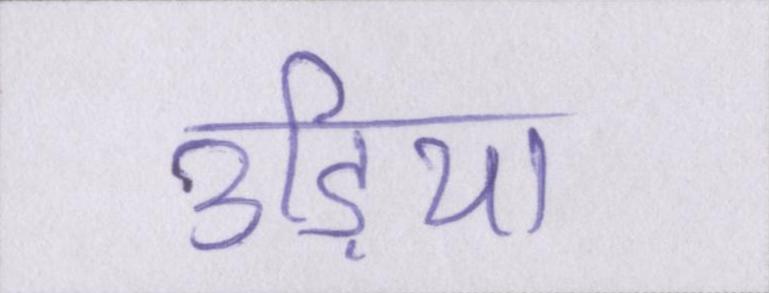 उड़िया